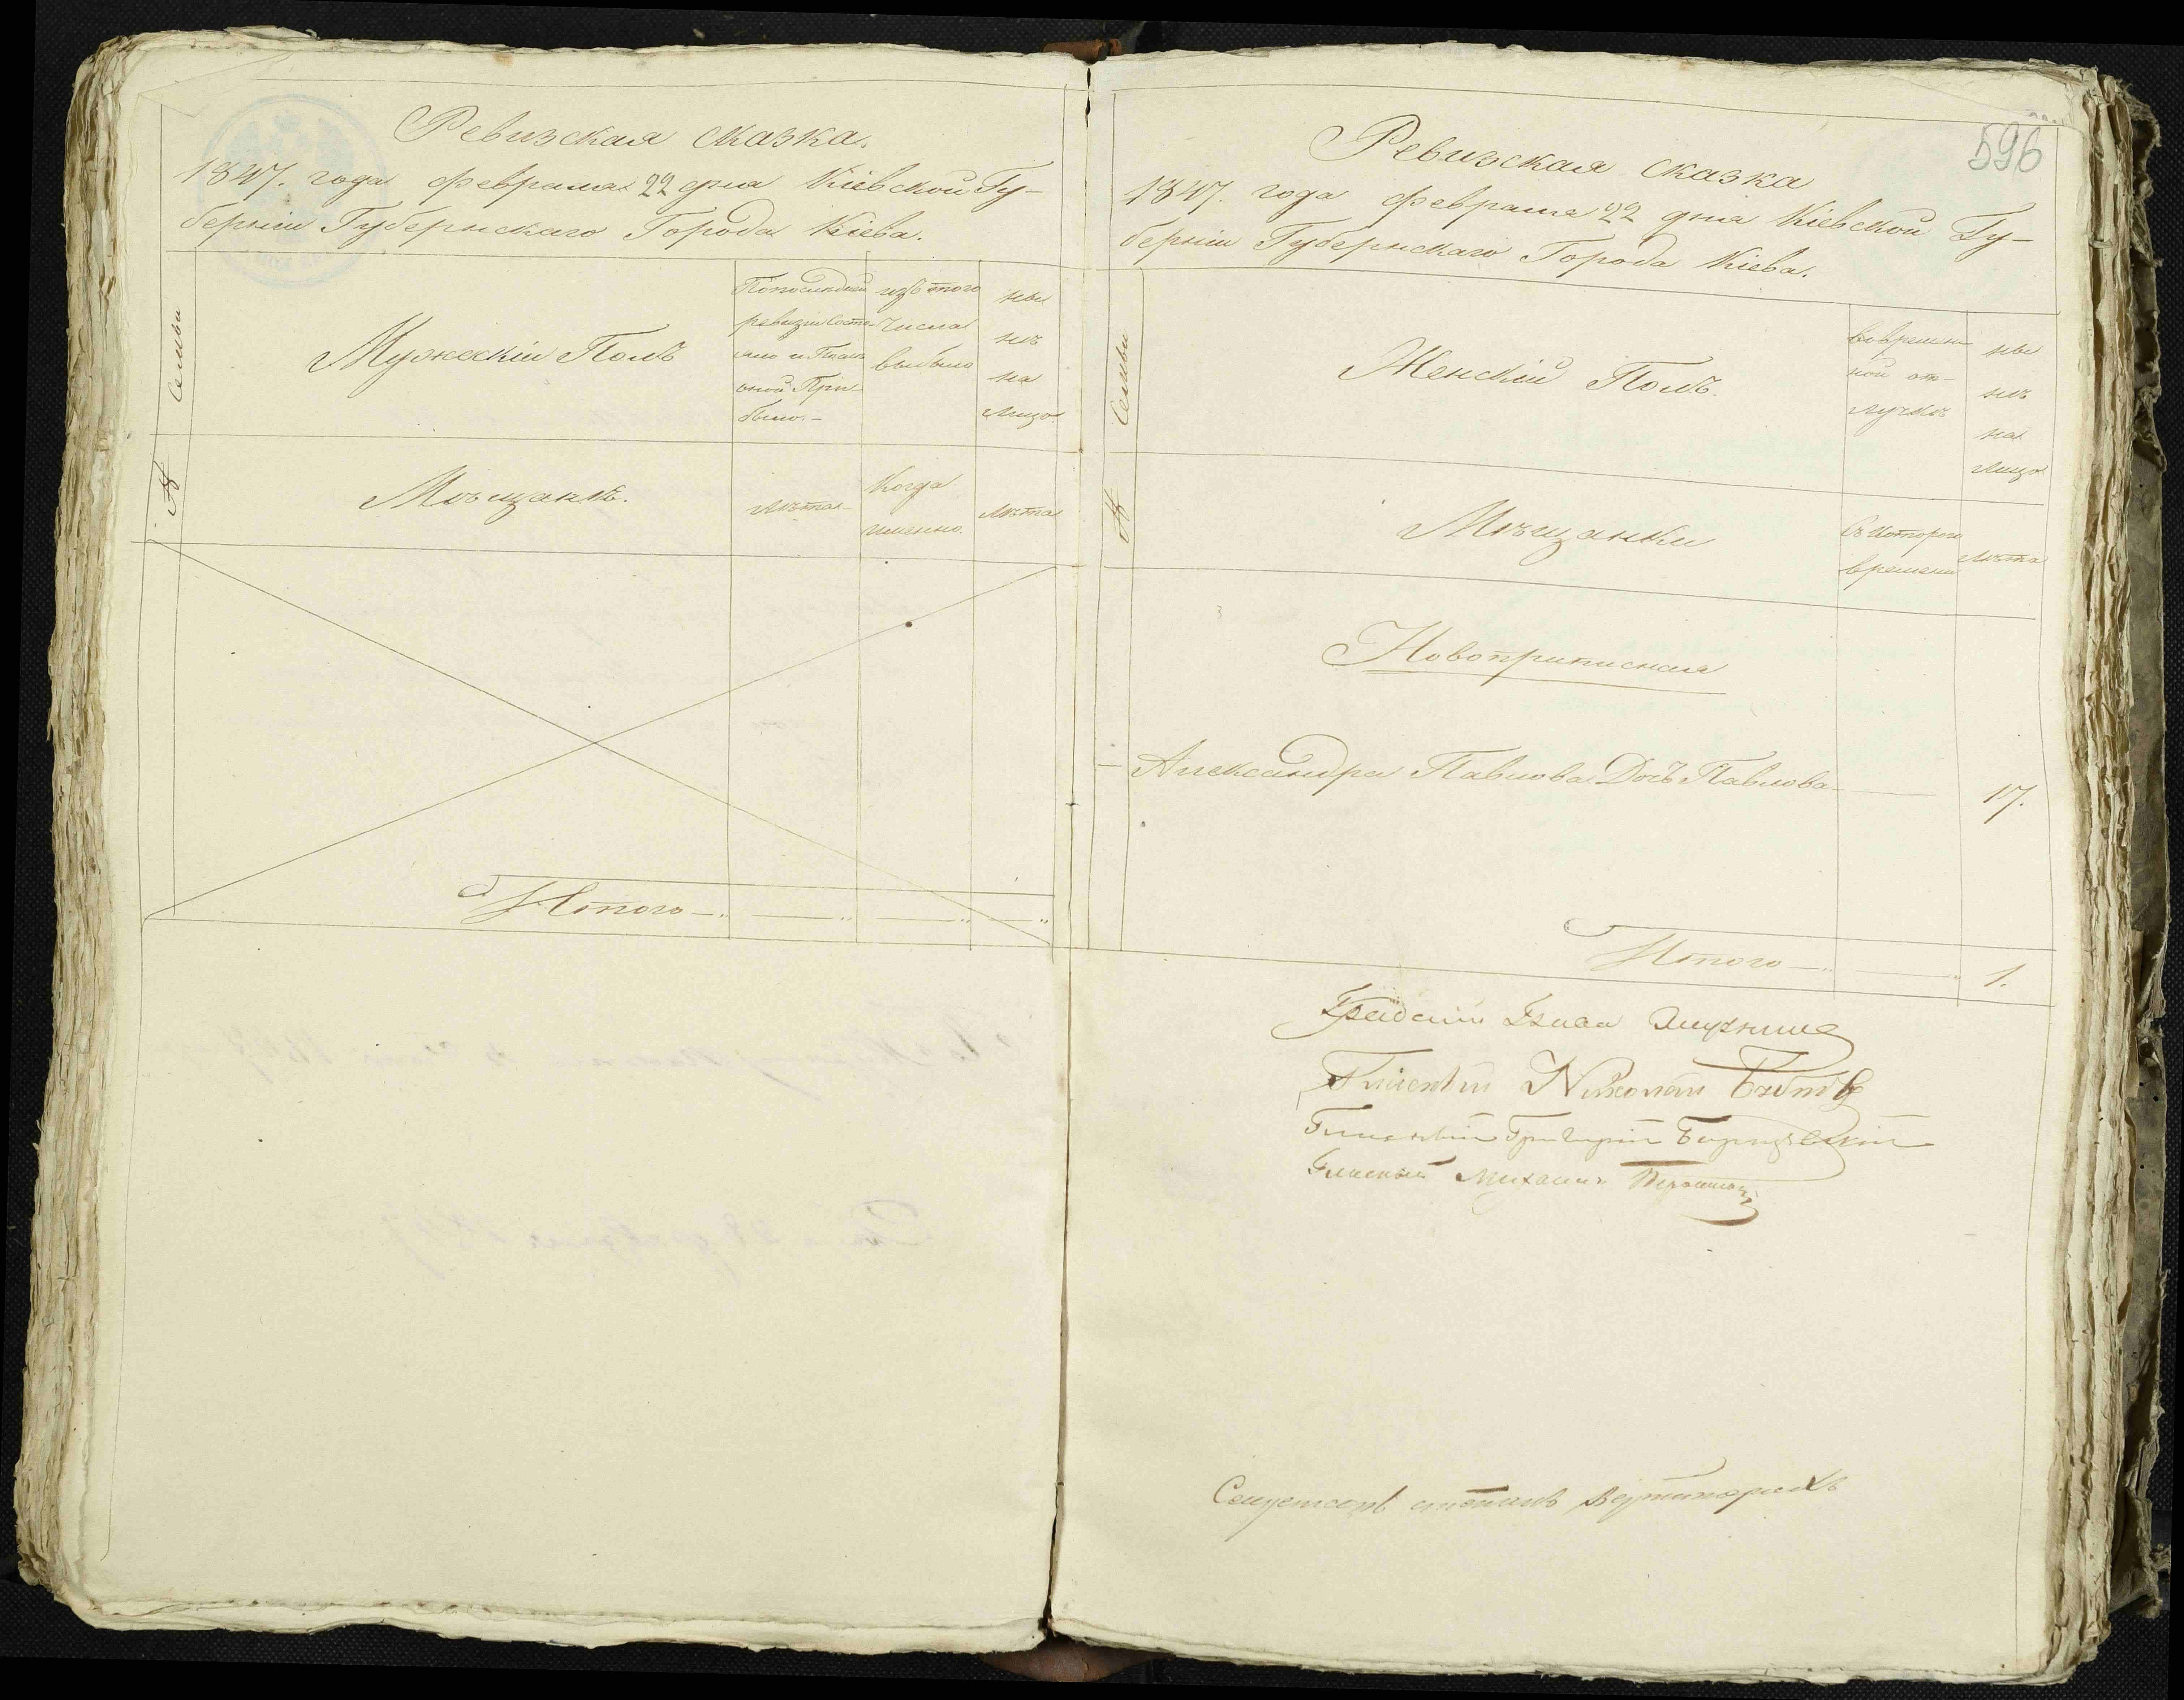 Ревизская сказка.
1847. года февраля 22 дня Кіевской Гу-
берніи Губернскаго Города Кіева.
№ Семьи
Мужескій Полъ
По последней
ревизіи Состо-
яло и После
оной При-
было. -
изъ того
числа
выбыло
ны
нѣ
на
Лицо.
Мѣщанѣ.
Лѣта
Когда
именно.
Лѣта
Итого
596
Ревизская сказка
1847. года февраля 22 дня Кіевской Гу-
берніи Губернскаго Города Кіева.
№ Семьи
Женскій Полъ.
Во времен
ной от-
лучкѣ
ны
нѣ
на
Лицо
Мѣщанки
Съ котораго
времени
Лѣта
Новоприписная
Александра Павлова Дочь Павлова 17.
Итого 1.
Градскій Глава
Гласный Николай
Гласный Григорій
Гласный Михаилъ